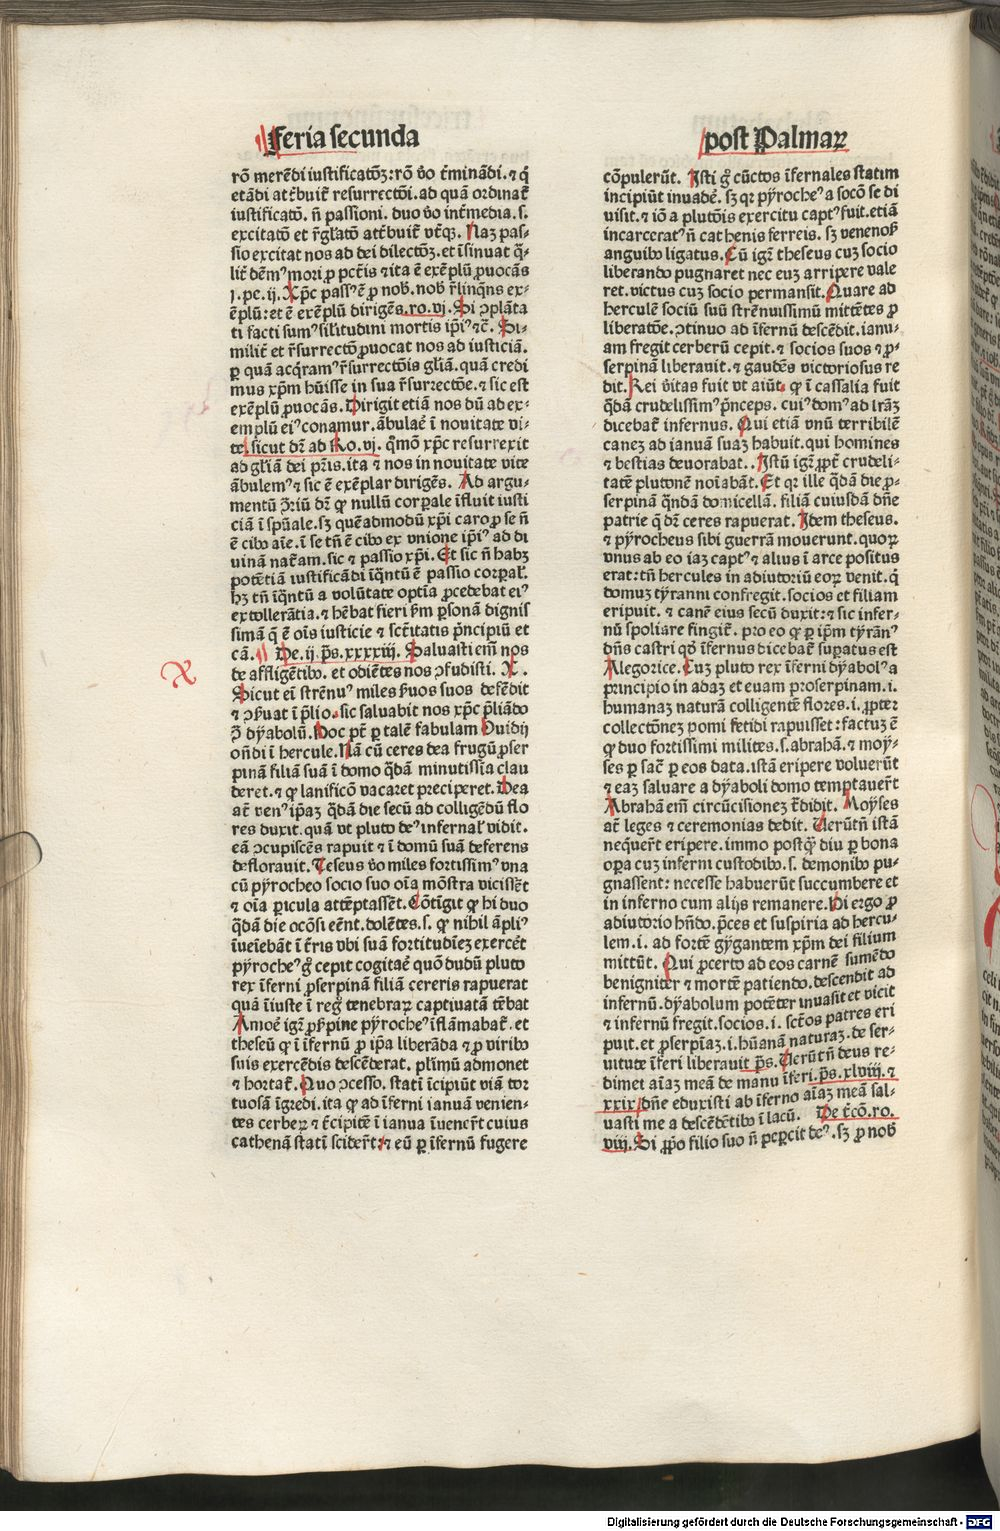 Feria secunda
post Palmaꝝ
rō merēdi iustificatōꝫ: rō v̄o t̄minādi. ⁊ q̄
etādi att̄buit̄ resurrectōi. ad quā ordinat̄
iustificatō. n̄ passioni. duo v̄o int̄media. s.
excitatō et r̄glatō att̄buit̄ vt̄qꝫ. Naꝫ pas-
sio excitat nos ad dei dilectōꝫ. et īsinuat q̄-
lit̄ dēm⁹ mori ꝓ pct̄is ⁊ ita ē exēplū ꝓuocās
j. pe. ij. Xp̄c pass⁹ ē ꝓ nob̄. nob̄ r̄linq̄ns ex-
ēplū: et ē exēplū dirigēs. ro. vj. Si ꝯplāta
ti facti sum⁹ sil̄itudini mortis ip̄i⁹ ⁊c̄. Si-
milit̄ et r̄surrectō ꝓuocat nos ad iusticiā.
ꝑ quā acq̄ram⁹ r̄surrectōis gl̄iā. quā credi
mus xp̄m h̄uisse in sua r̄surrectōe. ⁊ sic est
exēplū ꝓuocās. Dirigit etiā nos dū ad ex-
emplū ei⁹ conamur. ābulae᷒ ī nouitate vi-
te. sicut dr̄ ad Ro. vj. q̄mō xp̄c resurrexit
ad gl̄iā dei pr̄is. ita ⁊ nos in nouitate vite
ābulem⁹ ⁊ sic ē exēplar dirigēs. Ad argu-
mentū ꝯ̄riū dr̄ ꝙ nullū corꝑale īfluit iusti
ciā ī sp̄uale. sꝫ quēadmodū xp̄i caro ꝑ se n̄
ē cibꝰ aīe. ī se tn̄ ē cibꝰ ex vnione ip̄i⁹ ad di
uinā nat̄am. sic ⁊ passio xp̄i. Et sic n̄ habꝫ
potētiā iustificādi īq̄ntū ē passio corꝑal̄.
hꝫ tn̄ īq̄ntū a volūtate optīa ꝓcedebat ei⁹
ex tollerātia. ⁊ hēbat fieri ꝑm ꝑsonā dignis
simā q̄ ē oīs iusticie ⁊ sct̄itatis p̄ncipiū et
cā. De. ij. p̄s. xxxxiij. Saluasti em̄ nos
de affligētibꝰ. et odiētes nos ꝯfudisti. X.
Sicut ei strēnu⁹ miles ẜuos suos defēdit
⁊ ꝯẜuat ī p̄lio. sic saluabit nos xp̄c p̄liādo
ꝯ̄ dyabolū. Hoc pt̄ ꝑ talē fabulam Ouidij
on̄di ī hercule. Nā cū ceres dea frugū ꝓser
pinā filiā suā ī domo q̄dā minutissīa clau
deret. ⁊ ꝙ lanificō vacaret preciperet. Dea
at̄ ven⁹ ip̄aꝫ q̄dā die secū ad colligēdū flo
res duxit. quā vt pluto de⁹ infernal̄ vidit.
eā ꝯcupiscēs rapuit ⁊ ī domū suā deferens
deflorauit. Teseus v̄o miles fortissim⁹ vna
cū pyrocheo socio suo oīa mōstra vicissēt
⁊ oīa ꝑicula attēptassēt. Cōtīgit ꝙ hi duo
q̄dā die ocōsi eēnt. dolētes. s. ꝙ nihil āpli⁹
īueīebāt ī t̄ris vbi suā fortitudīeꝫ exercēt
pyroche⁹ gͦ cepit cogitae᷒ quō dudū pluto
rex īferni ꝓserpinā filiā cereris rapuerat
quā īiuste ī reg̅ tenebraꝝ captiuatā tēbat
Amoe᷒ igr̄ ꝓẜpine pyroche⁹ īflāmabat̄. et
theseū ꝙ ī īfernū ꝓ ip̄a liberāda ⁊ ꝓ viribꝰ
suis exercēdis descēderat. pl̄imū admonet
⁊ hortat̄. Quo ꝯcesso. statī īcipiūt viā tor
tuosā īgredi. ita ꝙ ad īferni ianuā venien-
tes cerbeꝝ ⁊ t̄cipitē ī ianua īuener̄t cuius
cathenā statī scider̄t: ⁊ eū ꝑ īfernū fugere
cōpulerūt. Isti gͦ cūctos īfernales statim
incipiūt inuade᷒. sꝫ qꝛ pyroche⁹ a socō se di
uisit. ⁊ iō a plutōis exercitu capt⁹ fuit. etiā
incarcerat⁹ n̄ cathenis ferreis. sꝫ venenoẜ
anguibꝰ ligatus. Cū igr̄ theseus cuꝫ socio
liberando pugnaret nec euꝫ arripere vale
ret. victus cuꝫ socio permansit. Quare ad
herculē sociū suū strēnuissimū mittētes ꝓ
liberatōe. ꝯtinuo ad īfernū descēdit. ianu-
am fregit cerberū cepit. ⁊ socios suos ⁊ ꝓ-
serpinā liberauit. ⁊ gaudēs victoriosus re
dit. Rei v̄itas fuit vt aiūt. ꝙ ī cassalia fuit
q̄dā crudelissim⁹ p̄nceps. cui⁹ dom⁹ ad lr̄aꝫ
dicebat̄ infernus. Qui etiā vnū terribilē
caneꝫ ad ianuā suaꝫ habuit. qui homines
⁊ bestias deuorabat. . Istū igr̄ ꝓpt̄ crudeli-
tatē plutonē noīabāt. Et qꝛ ille q̄dā die ꝓ-
serpinā q̄ndā domicellā. filiā cuiusdā dn̄e
patrie q̄ dr̄ ceres rapuerat. Idem theseus.
⁊ pyrocheus sibi guerrā mouerunt. quoꝝ
vnus ab eo iaꝫ capt⁹ ⁊ alius ī arce positus
erat: tn̄ hercules in adiutoriū eoꝝ venit. q̄
domuꝫ tyranni confregit. socios et filiam
eripuit. ⁊ canē eius secū duxit: ⁊ sic infer-
nū spoliare fingit̄. pro eo ꝙ ꝑ ip̄m tyrān⁹
dn̄s castri qd̄ īfernus dicebat̄ suꝑatus est
Alegorice. Cuꝫ pluto rex īferni dyabol⁹ a
principio in adaꝫ et euam proserpinam. i.
humanaꝫ naturā colligentē flores. i. ꝓpter
collectōneꝫ pomi fetidi rapuisset: factuꝫ ē
ꝙ duo fortissimi milites. s. abrahā. ⁊ moy-
ses ꝑ sac̄ ꝑ eos data. istā eripere voluerūt
⁊ eaꝫ saluare a dyaboli domo temptauer̄t
Abrahā em̄ circūcisioneꝫ t̄didit. Moyses
at̄ leges ⁊ ceremonias dedit. Uerūtn̄ istā
nequer̄t eripere. immo postqꝫ̄ diu ꝑ bona
oꝑa cuꝫ inferni custodibꝰ. s. demonibꝰ pu-
gnassent: necesse habuerūt succumbere et
in inferno cum alijs remanere. Hi ergo ꝓ
adiutorio hn̄do. p̄ces et suspiria ad hercu-
lem. i. ad fortē gygantem xp̄m dei filium
mittūt. Qui ꝓcerto ad eos carnē sumēdo
benigniter ⁊ mortē patiendo. descendit ad
infernū. dyabolum potēter inuasit et vicit
⁊ infernū fregit. socios. i. sct̄os patres eri
puit. et ꝓserpīaꝫ. i. hūanā naturaꝫ. de ser-
uitute īferi liberauit p̄s. Uerūtn̄ deus re-
dimet aīaꝫ meā de manu īferi. p̄s. xlviij. ⁊
xxix. dn̄e eduxisti ab īferno aīaꝫ meā sal-
uasti me a descēdētibꝰ ī lacū. De t̄cō. ro.
viij. Si ꝓpō filio suo n̄ peꝑcit de⁹. sꝫ ꝓ nob̄
X
Digitalisierung gefördert durch die Deutsche Forschungsgemeinschaft - DFG